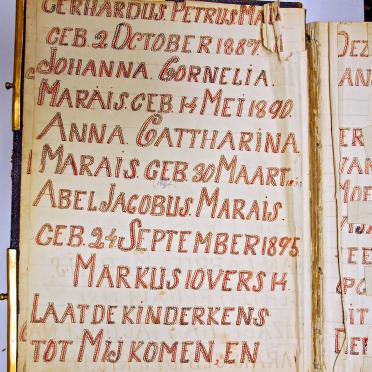 GERHARDUS. PETRUS MA
GEB. 2 OCTOBER 1887
JOHANNA. CORNELIA.
MARAIS. GEB 14 MEI 1890.
ANNA. CATTHARINA
MARAIS. GEB 30 MAART.
ABEL JACOBUS. MARAIS.
GEB. 24 SEPTEMBER 1895.
MARKUS 10 VERS 14.
LAAT DE KINDERKENS
TOT MIJ KOMEN, EN